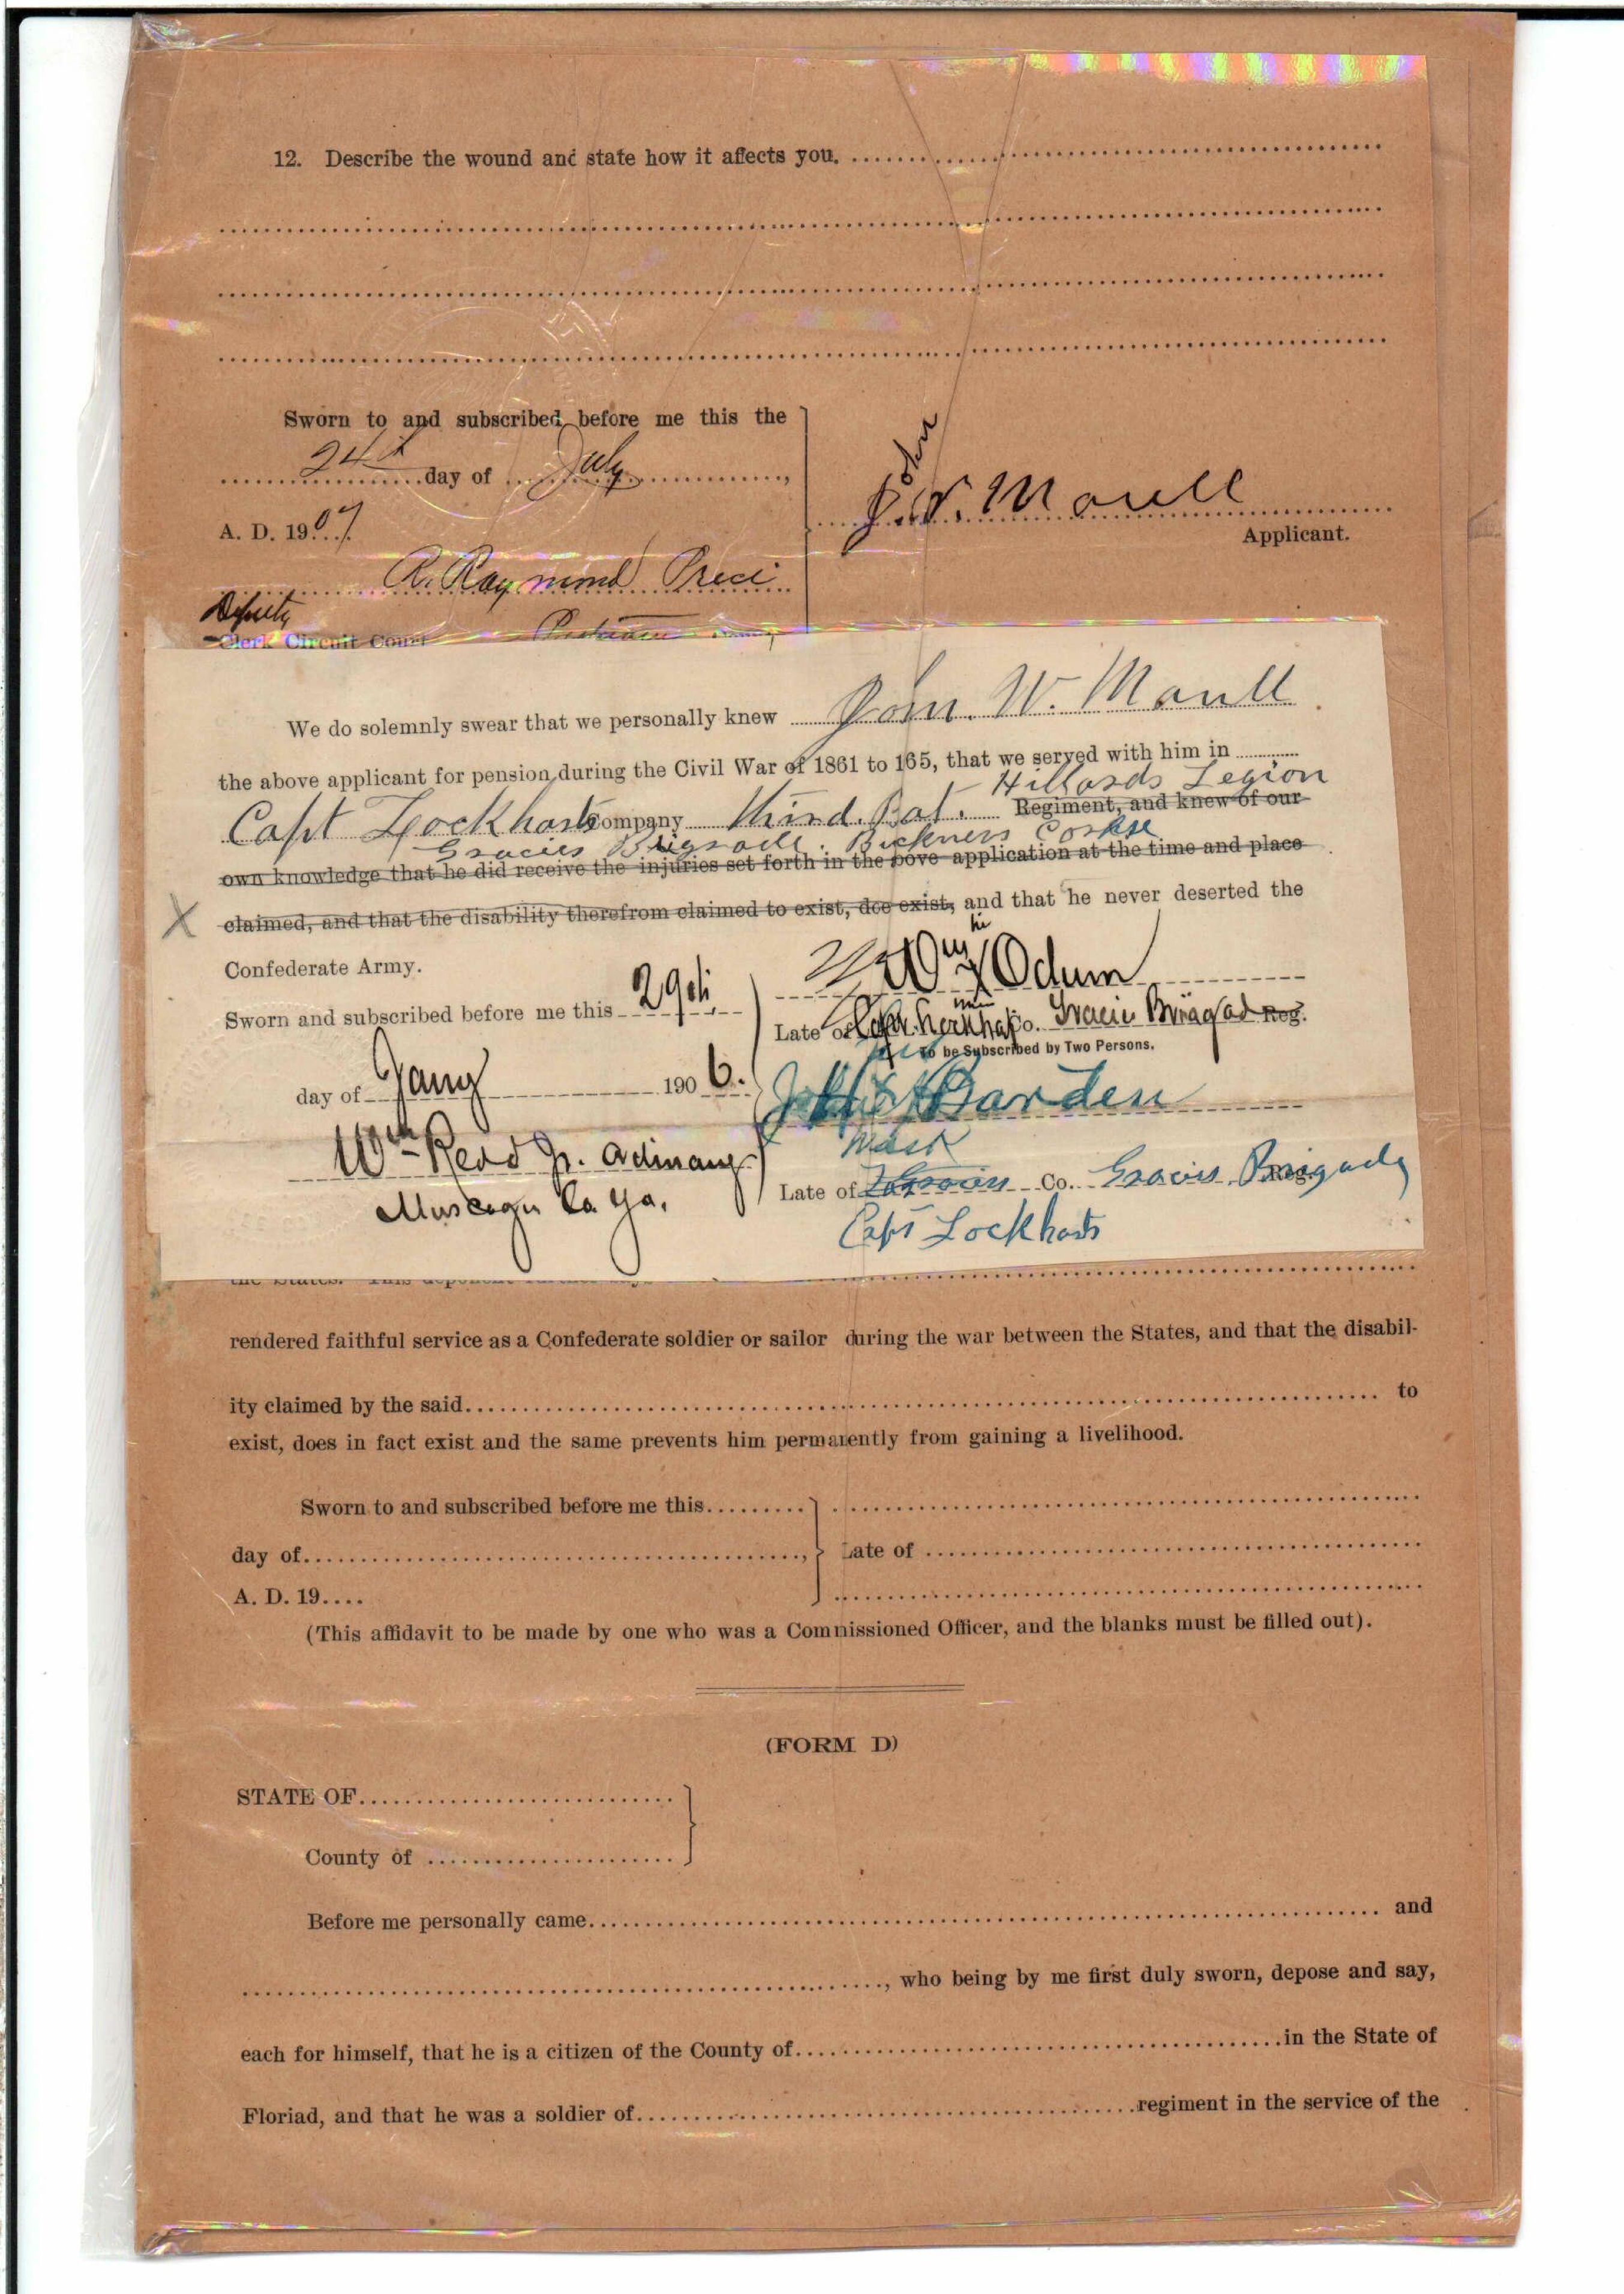 12. Describe the wound and state how it affects you.
Sworn to and subscribed before me this the
24th day of July,
A. D. 1907.
John
J. W. Maull
Applicant.
R. Raymond Preci
Deputy
Clerk Circuit Court
We do solemnly swear that we personally knew John. W. Maull
the above applicant for pension during the Civil War of 1861 to 165, that we served with him in
Hillards Legion
Capt Lockharts Company third. Bat. Regiment, and knew of our
Gracies Brigade. Buckners Corpse
own knowledge that he did receive the injuries set forth in the bove application at the time and place
X claimed, and that the disability therefrom claimed to exist, doe exist, and that he never deserted the
Confederate Army.
Wm X Odum
Sworn and subscribed before me this 29th
Late of Co. Gracies Brigad Reg.
To be Subscribed by Two Persons.
day of Jany 1906.
Barden
mark
Wm Read Jr. Ordinary
Late of Co. Gracies Brigady Reg.
Muscogee Co. Ga.
Capt Lockharts
the States. This deponent further says
rendered faithful service as a Confederate soldier or sailor during the war between the States, and that the disabil-
ity claimed by the said to
exist, does in fact exist and the same prevents him permanently from gaining a livelihood.
Sworn to and subscribed before me this
day of, Late of
A. D. 19
(This affidavit to be made by one who was a Commissioned Officer, and the blanks must be filled out).
(FORM D)
STATE OF
County of
Before me personally came and
, who being by me first duly sworn, depose and say,
each for himself, that he is a citizen of the County of in the State of
Floriad, and that he was a soldier of regiment in the service of the